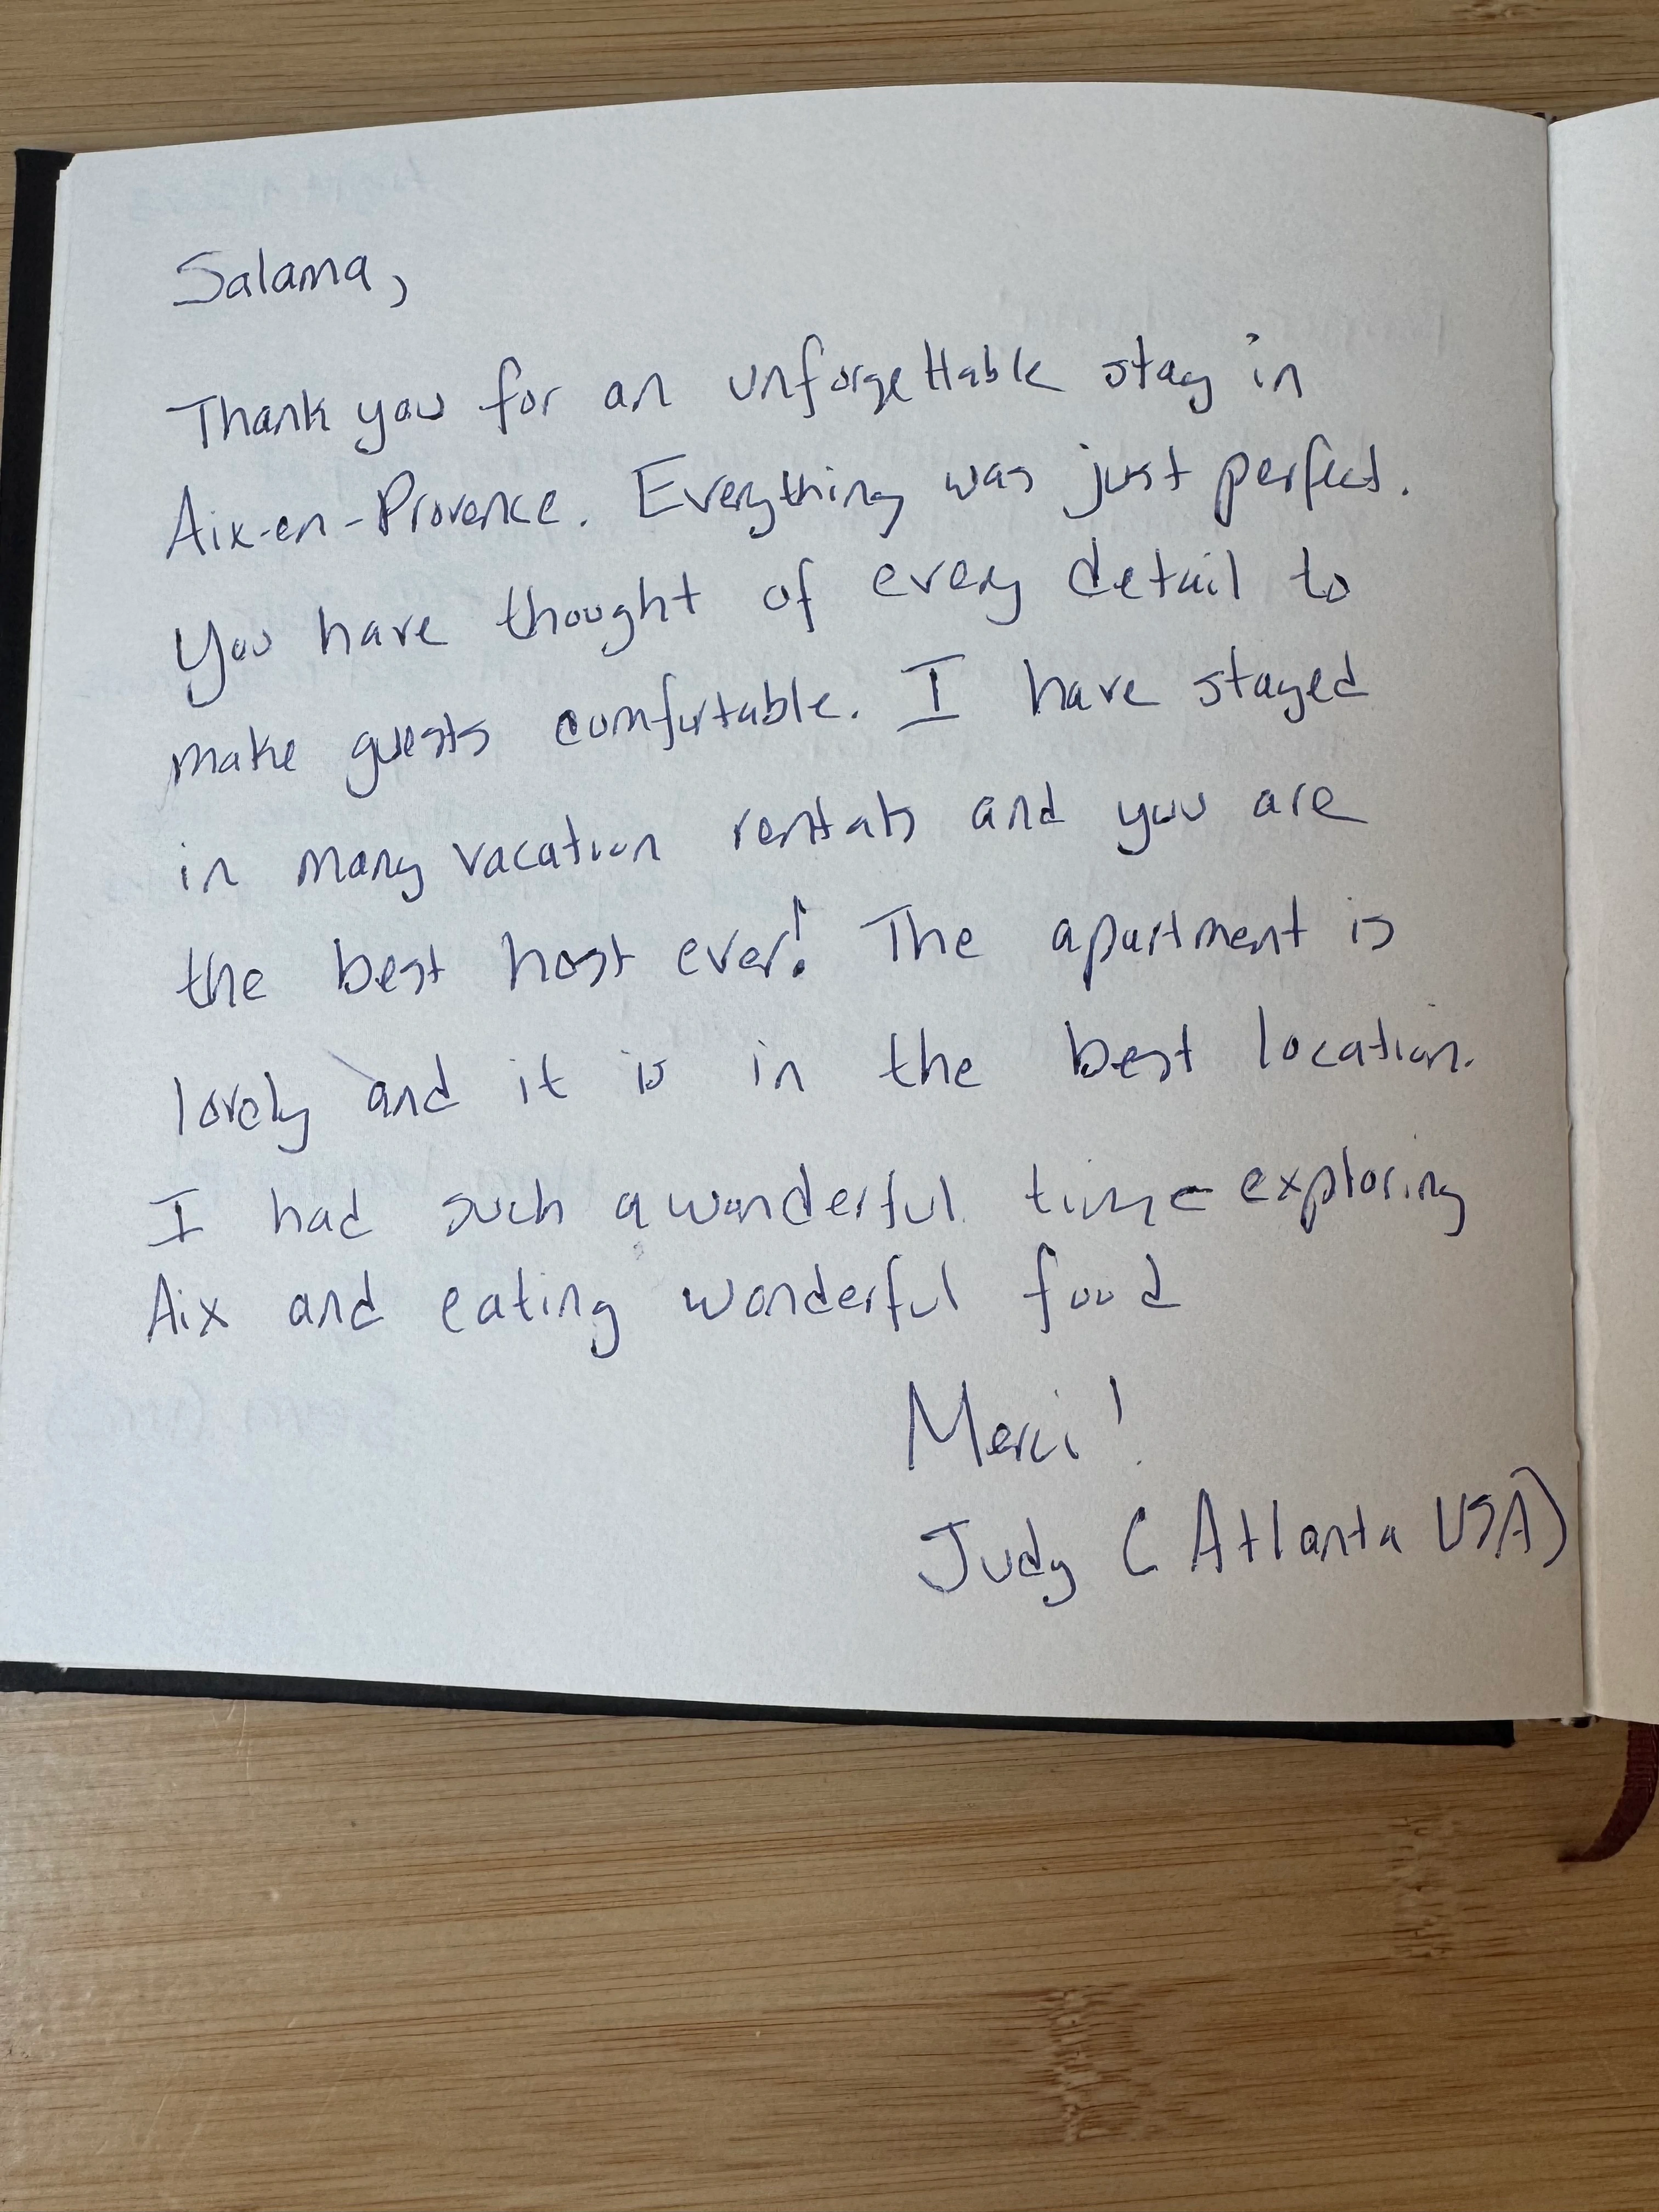 Salama,
Thank you for an unforgettable stay in
Aix-en-Provence. Everything was just perfect.
You have thought of every detail to
make guests comfortable. I have stayed
in many vacation rentals and you are
the best host ever! The apartment is
lovely and it is in the best location.
I had such a wonderful time exploring
Aix and eating wonderful food
Merci!
Judy (Atlanta USA)